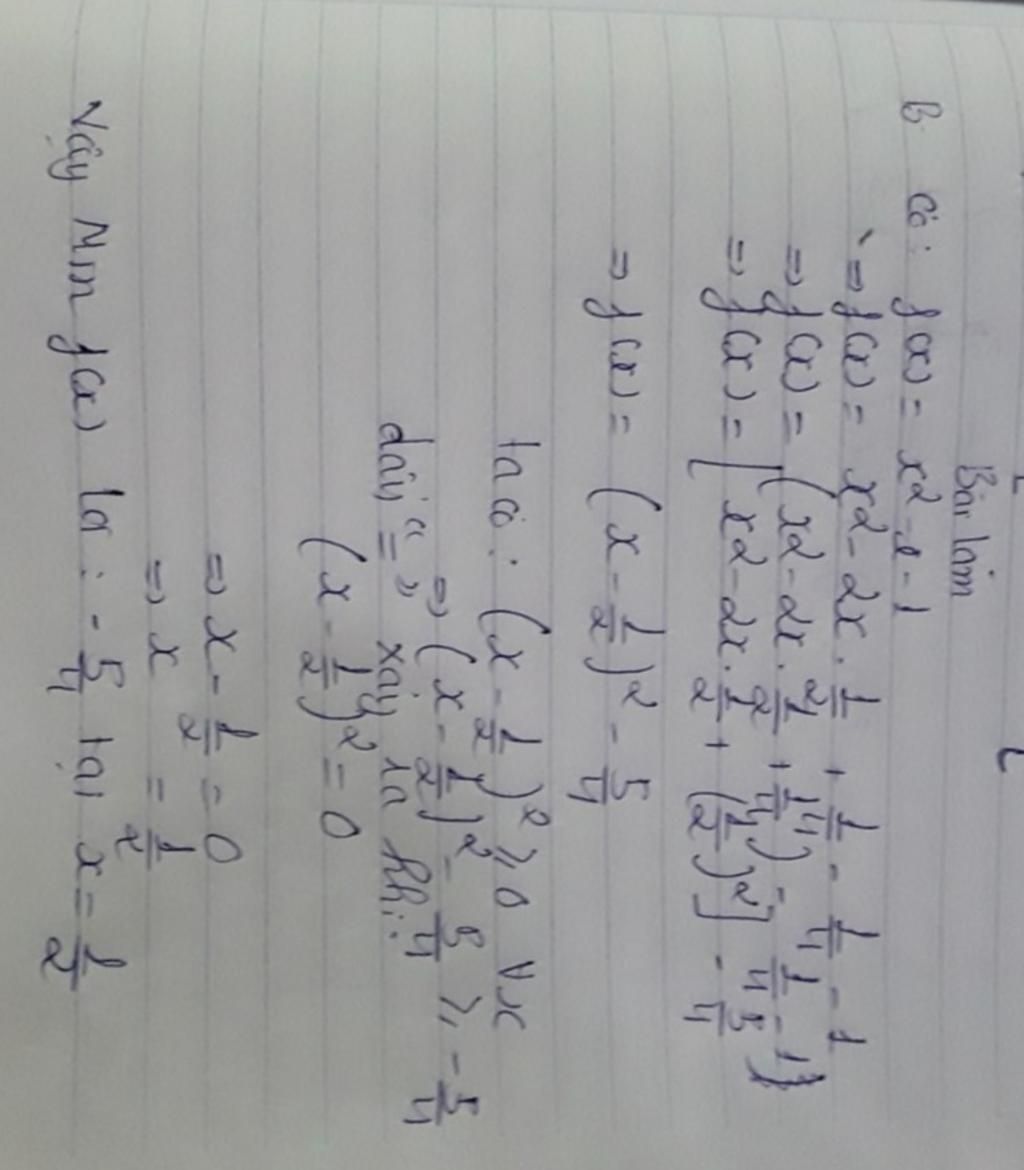 Bài làm
B. Có: f(x) = x² - x - 1
=> f(x) = x² - 2x . 1/2 + 1/4 - 1/4 - 1
=> f(x) = (x² - 2x . 1/2 + 1/4) - 1/4 - 1
=> f(x) = [x² - 2x . 1/2 + (1/2)²] - 5/4
=> f(x) = (x - 1/2)² - 5/4
Ta có: (x - 1/2)² ≥ 0 ∀x
=> (x - 1/2)² - 5/4 ≥ - 5/4
dấu "=" xảy ra khi:
(x - 1/2)² = 0
=> x - 1/2 = 0
=> x = 1/2
Vậy Min f(x) là: - 5/4 tại x = 1/2